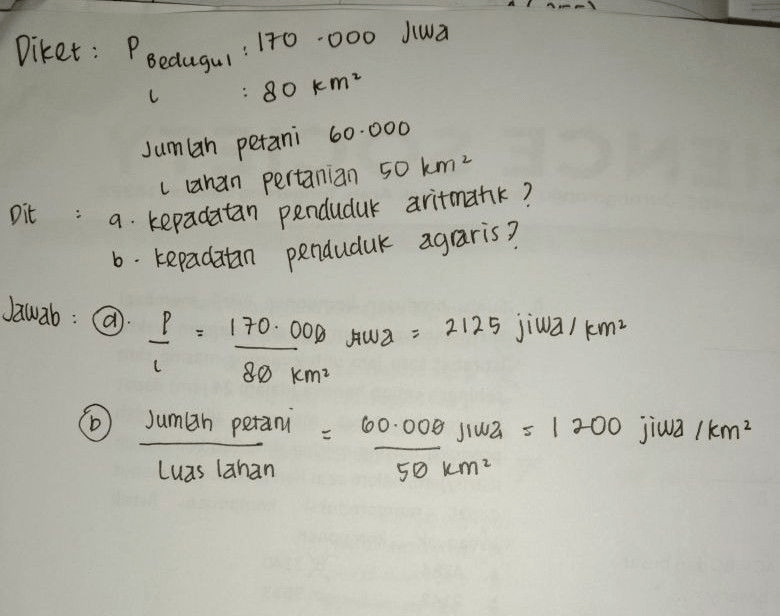 Diket : P Bedugul : 170.000 Jiwa
L : 80 km²
Jumlah petani 60.000
L lahan pertanian 50 km²
Dit : a. kepadatan penduduk aritmatik ?
b. kepadatan penduduk agraris ?
Jawab : a. P/L = 170.000 Jiwa / 80 km² = 2125 jiwa/km²
b Jumlah petani / Luas lahan = 60.000 Jiwa / 50 km² = 1200 jiwa/km²